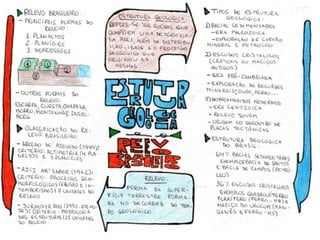 RELEVO BRASILEIRO
- PRINCIPAIS FORMAS DO RELEVO:
1. PLANALTOS
2. PLANÍCIES
3. DEPRESSÕES
- OUTRAS FORMAS DO RELEVO:
ESCARPA, CUESTA, CHAPADA,
MORRO, MONTANHA, INSEL-
BERG
CLASSIFICAÇÃO DO RE-
LEVO BRASILEIRO
- AROLDO DE AZEVEDO (1949):
CRITÉRIO: ALTIMETRIA
- AZIZ AB'SABER (1962):
CRITÉRIO: PROCESSOS GEO-
MORFOLÓGICOS
RELEVO
- JURANDYR ROSS
CRITÉRIO: MORFOLOGIA
DO RELEVO
ESTRUTURA GEOLÓGICA
REFERE-SE ÀS ROCHAS QUE
COMPÕEM UMA DETERMINADA
ÁREA, ALÉM DE DISTRIBUI-
ÇÃO, IDADE E O PROCESSO
GEOLÓGICO QUE
ORIGINOU AS
MESMAS
ESTRUTURA
GEOLÓGICA
RELEVO
BRASILEIRO
RELEVO
FORMA DA SUPER-
FÍCIE TERRESTRE FORMA-
DA NO DECORRER DO TEM-
PO GEOLÓGICO
TIPOS DE ESTRUTURA
GEOLÓGICA:
1) BACIAS SEDIMENTARES
- ERA PALEOZOICA
- EXPLORAÇÃO DE CARVÃO
MINERAL E PETRÓLEO
2) ESCUDOS CRISTALINOS
(CRÁTONS OU MACIÇOS
ANTIGOS)
- ERA PRÉ-CAMBRIANA
- EXPLORAÇÃO DE RECURSOS
MINERAIS: OURO, FERRO...
3) DOBRAMENTOS MODERNOS
- ERA CENOZOICA
- RELEVO JOVEM
- ORIGEM NO ENCONTRO DE
PLACAS TECTÔNICAS
ESTRUTURA GEOLÓGICA
DO BRASIL
64% BACIAS SEDIMENTARES
E BACIA DE CAMPOS (PETRÓ-
LEO)
36% ESCUDOS CRISTALINOS
EXEMPLOS: QUADRILÁTERO
FERRÍFERO (FERRO - MG) E
MACIÇO DO URUCUM (MAN-
GANÊS E FERRO - MS)